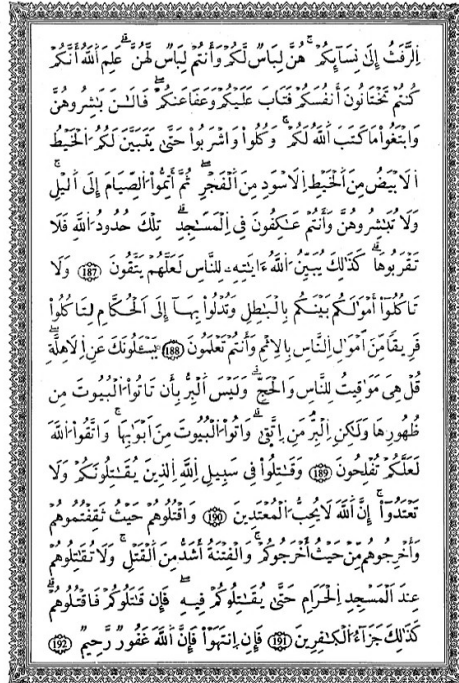 اِ۬لرَّفَثُ إِلَىٰ نِسَآئِكُمْۖ هُنَّ لِبَاسٞ لَّكُمْ وَأَنتُمْ لِبَاسٞ لَّهُنَّۖ عَلِمَ اَ۬للَّهُ أَنَّكُمْ
كُنتُمْ تَخْتَانُونَ أَنفُسَكُمْ فَتَابَ عَلَيْكُمْ وَعَفَا عَنكُمْۖ فَالَٰنَ بَٰشِرُوهُنَّ
وَابْتَغُواْ مَا كَتَبَ اَ۬للَّهُ لَكُمْۖ وَكُلُواْ وَاشْرَبُواْ حَتَّىٰ يَتَبَيَّنَ لَكُمُ اُ۬لْخَيْطُ
اُ۬لَابْيَضُ مِنَ اَ۬لْخَيْطِ اِ۬لَاسْوَدِ مِنَ اَ۬لْفَجْرِۖ ثُمَّ أَتِمُّواْ اُ۬لصِّيَامَ إِلَى اَ۬ليْلِۖ
وَلَا تُبَٰشِرُوهُنَّ وَأَنتُمْ عَٰكِفُونَ فِي اِ۬لْمَسَٰجِدِۖ تِلْكَ حُدُودُ اُ۬للَّهِ فَلَا
تَقْرَبُوهَاۖ كَذَٰلِكَ يُبَيِّنُ اُ۬للَّهُ ءَايَٰتِهِۦ لِلنَّاسِ لَعَلَّهُمْ يَتَّقُونَ 187 وَلَا
تَاكُلُوٓاْ أَمْوَٰلَكُم بَيْنَكُم بِالْبَٰطِلِ وَتُدْلُواْ بِهَآ إِلَى اَ۬لْحُكَّامِ لِتَاكُلُواْ
فَرِيقاٗ مِّنَ اَمْوَٰلِ اِ۬لنَّاسِ بِالِاثْمِ وَأَنتُمْ تَعْلَمُونَ 188 يَسْـَٔلُونَكَ عَنِ اِ۬لَاهِلَّةِۖ
قُلْ هِيَ مَوَٰقِيتُ لِلنَّاسِ وَالْحَجِّۖ وَلَيْسَ اَ۬لْبِرُّ بِأَن تَاتُواْ اُ۬لْبُيُوتَ مِن
ظُهُورِهَا وَلَٰكِنِ اِ۬لْبِرُّ مَنِ اِ۪تَّقَىٰۖ وَاتُواْ اُ۬لْبُيُوتَ مِنَ اَبْوَٰبِهَاۖ وَاتَّقُواْ اُ۬للَّهَ
لَعَلَّكُمْ تُفْلِحُونَ 189 وَقَٰتِلُواْ فِي سَبِيلِ اِ۬للَّهِ اِ۬لذِينَ يُقَٰتِلُونَكُمْ وَلَا
تَعْتَدُوٓاْۖ إِنَّ اَ۬للَّهَ لَا يُحِبُّ اُ۬لْمُعْتَدِينَ 190 وَاقْتُلُوهُمْ حَيْثُ ثَقِفْتُمُوهُمْ
وَأَخْرِجُوهُم مِّنْ حَيْثُ أَخْرَجُوكُمْۖ وَالْفِتْنَةُ أَشَدُّ مِنَ اَ۬لْقَتْلِۖ وَلَا تُقَٰتِلُوهُمْ
عِندَ اَ۬لْمَسْجِدِ اِ۬لْحَرَامِ حَتَّىٰ يُقَٰتِلُوكُمْ فِيهِۖ فَإِن قَٰتَلُوكُمْ فَاقْتُلُوهُمْۖ
كَذَٰلِكَ جَزَآءُ اُ۬لْكَٰفِرِينَ 191 فَإِنِ اِ۪نتَهَوْاْ فَإِنَّ اَ۬للَّهَ غَفُورٞ رَّحِيمٞ 192